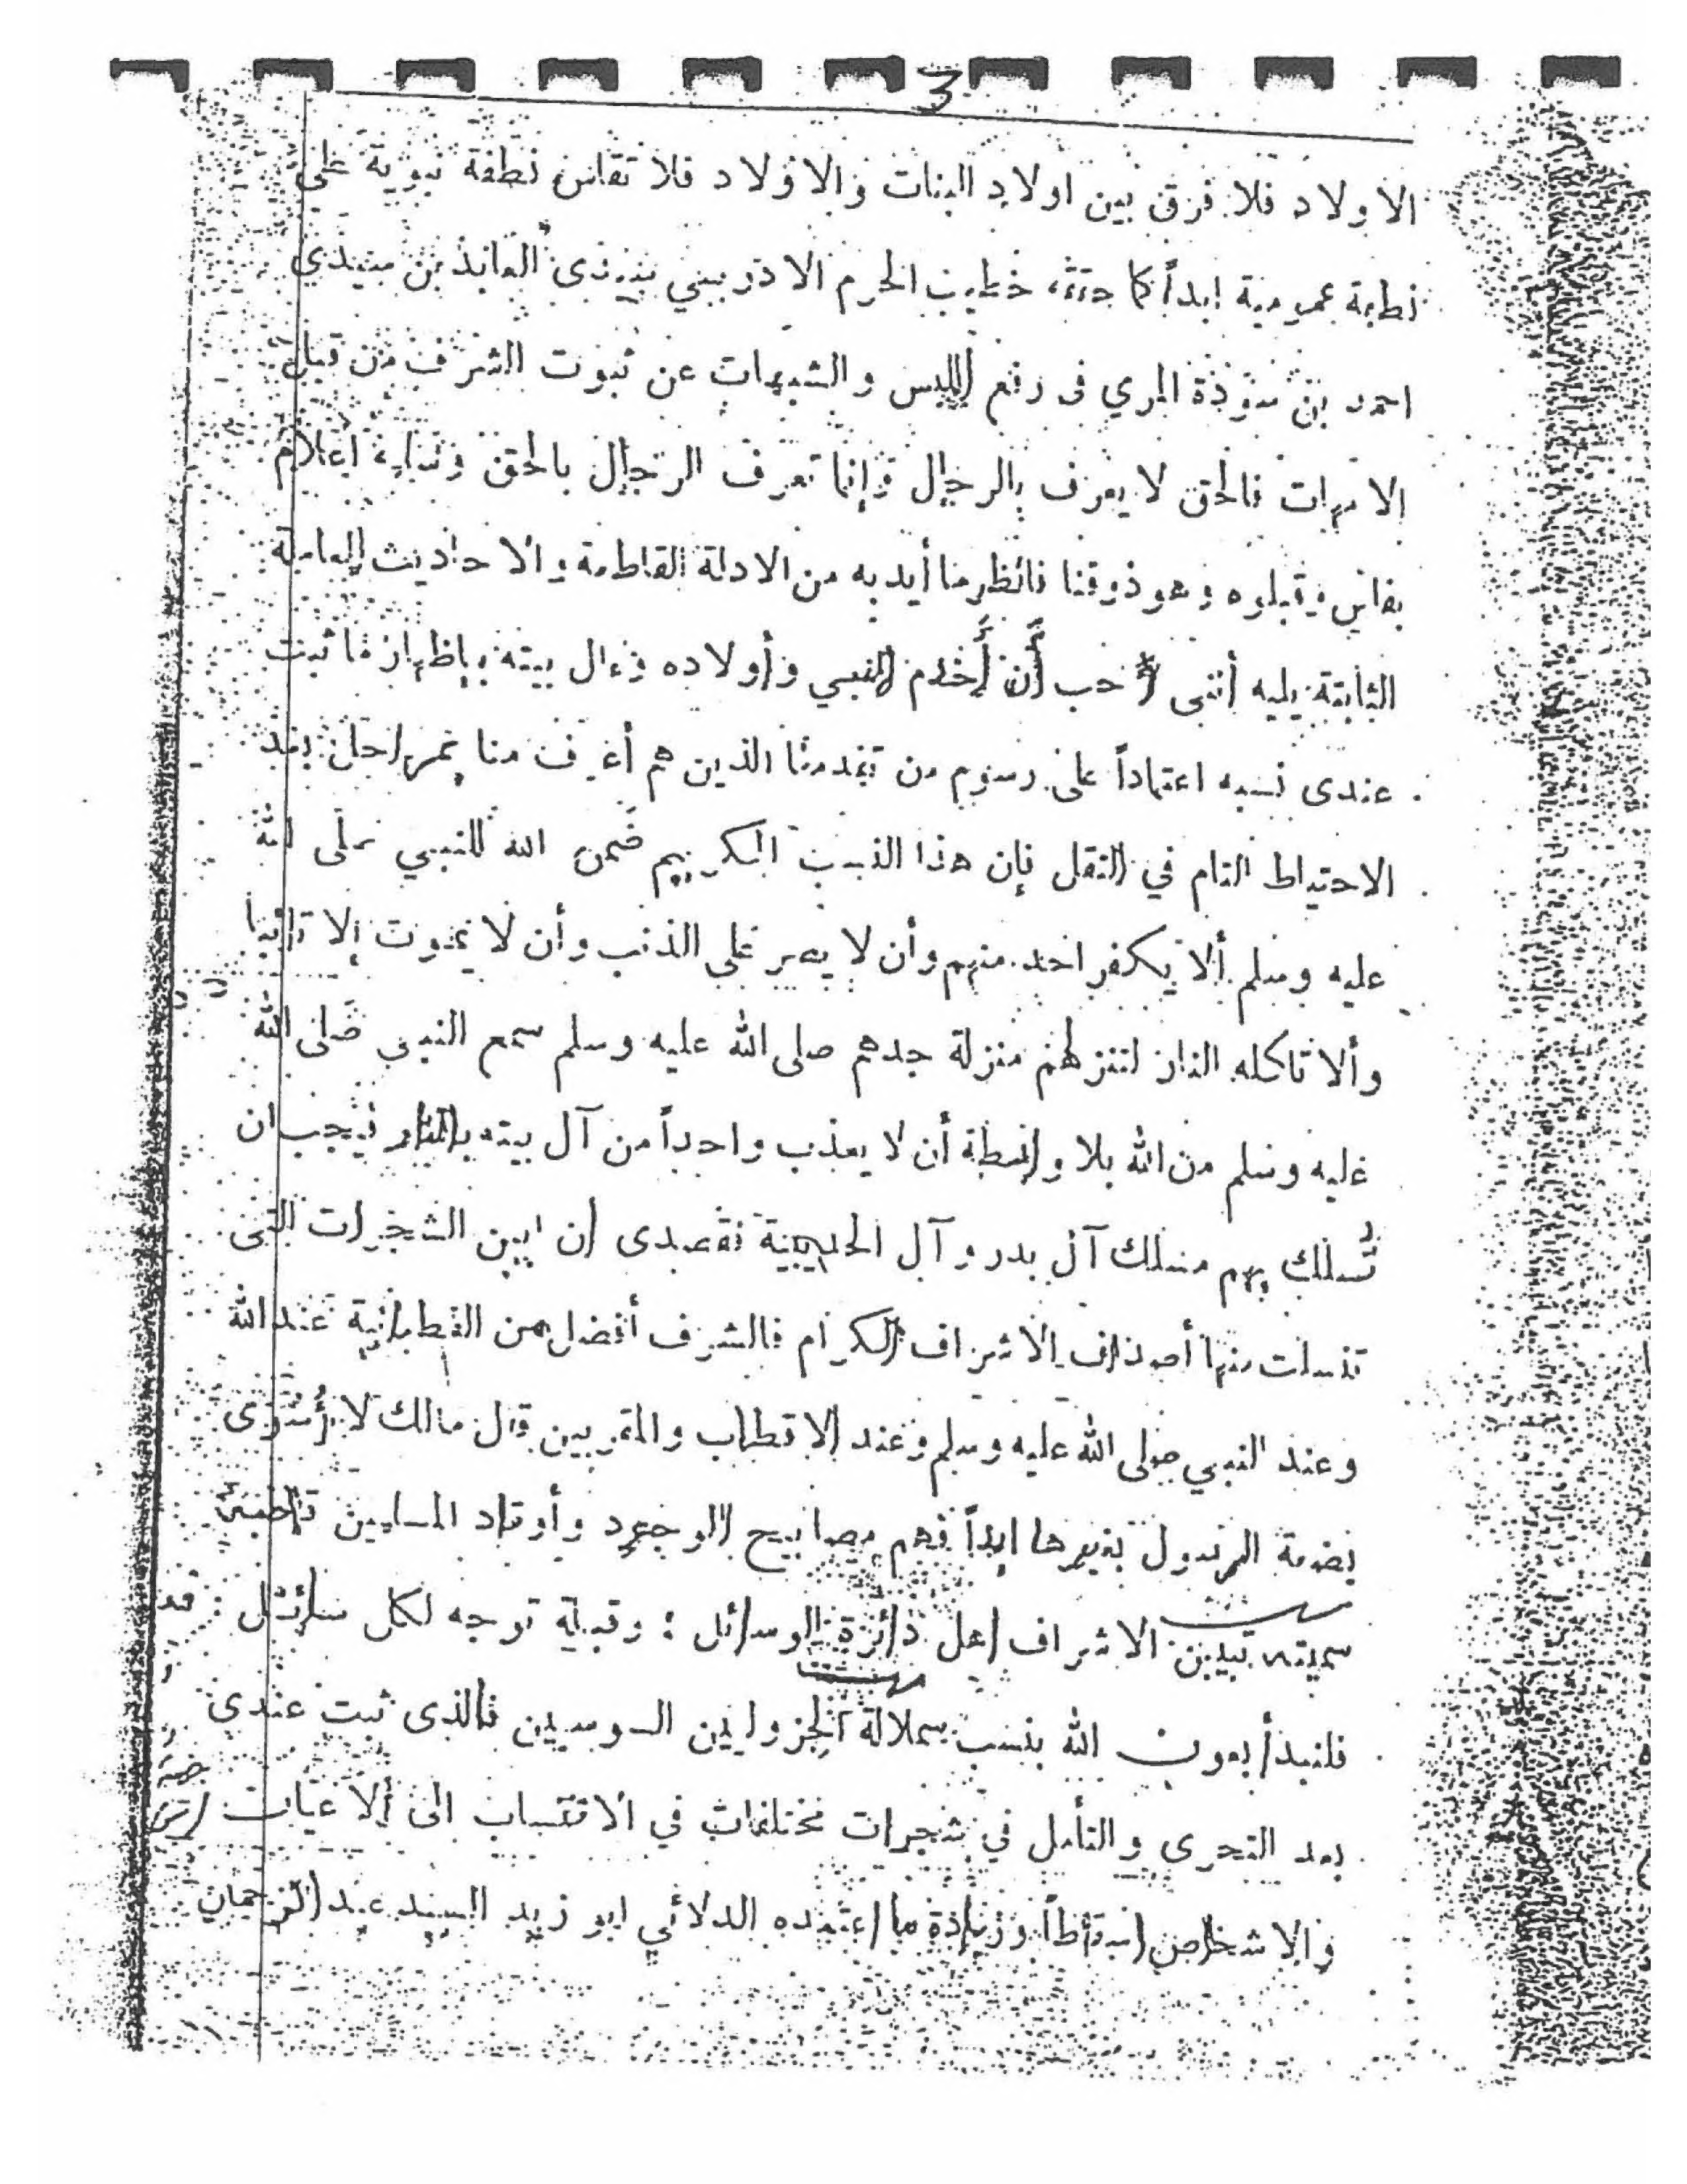 3
الاولاد فلا فرق بين اولاد البنات والاولاد فلا تقاس نطفة نبوية على
نطفة عمومية ابداً كما حققه خطيب الحرم الادريسي سيدى العابد بن سيدي
احمد بن سودة المري فى رفع اللبس والشبهات عن ثبوت الشرف من قبل
الامهات فالحق لا يعرف بالرجال وإنما تعرف الرجال بالحق وسأله اعلام
بفاس وقبلوه وهو ذوقنا فانظر ما أيد به من الادلة القاطعة والاحاديث العاملة
الثابتة يليه أننى احب أن أخدم النبي وأولاده وءال بيته بإظهار ما ثبت
عندى نسبه اعتماداً على رسوم من تقدمنا الذين هم أعرف منا بمراحل بعد
الاحتياط التام في النقل فإن هذا النسب الكريم ضمن الله للنبي صلى الله
عليه وسلم ألا يكفر احد منهم وأن لا يصر على الذنب وأن لا يموت إلا تائبا
وألا تاكله النار لتنزلهم منزلة جدهم صلى الله عليه وسلم سمع النبي صلى الله
عليه وسلم من الله بلا واسطة أن لا يعذب واحداً من آل بيته بالنار فيجب ان
تُسلك بهم مسلك آل بدر وآل الحديبية فقصدى ان ابين الشجرات التى
تنسلت منها أصناف الاشراف الكرام فالشرف أفضل من القطبانية عند الله
وعند النبي صلى الله عليه وسلم وعند الاقطاب والمقربين قال مالك لا أسوى
بضعة الرسول بغيرها ابداً فهم مصابيح الوجود وأوتاد المسلمين قاطبة
سميته تبيين الاشراف اهل دائرة الوسائل ؛ وقبلة توجه لكل سائل
فلنبدأ بعون الله بنسب سملالة الجزوليين السوسيين فالذى ثبت عندى
بعد التحرى والتأمل في شجرات مختلفات في الانتساب الى الاعيان
والاشخاص اسقاطاً وزيادة ما اعتمده الدلائي ابو زيد السيد عبد الرحمان